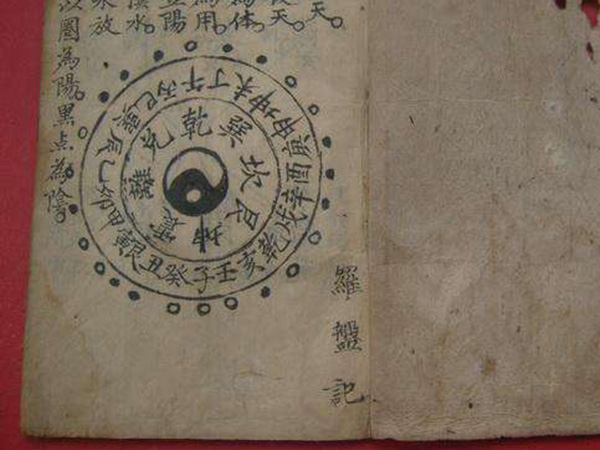 天。
天。
為体。
為用。
陽
水。
放
以圈為陽。黑点為陰。
乾巽坎艮坤震離兌
午丁未坤申庚酉辛戌乾亥壬子癸丑艮寅甲卯乙辰巽巳丙
羅盤記